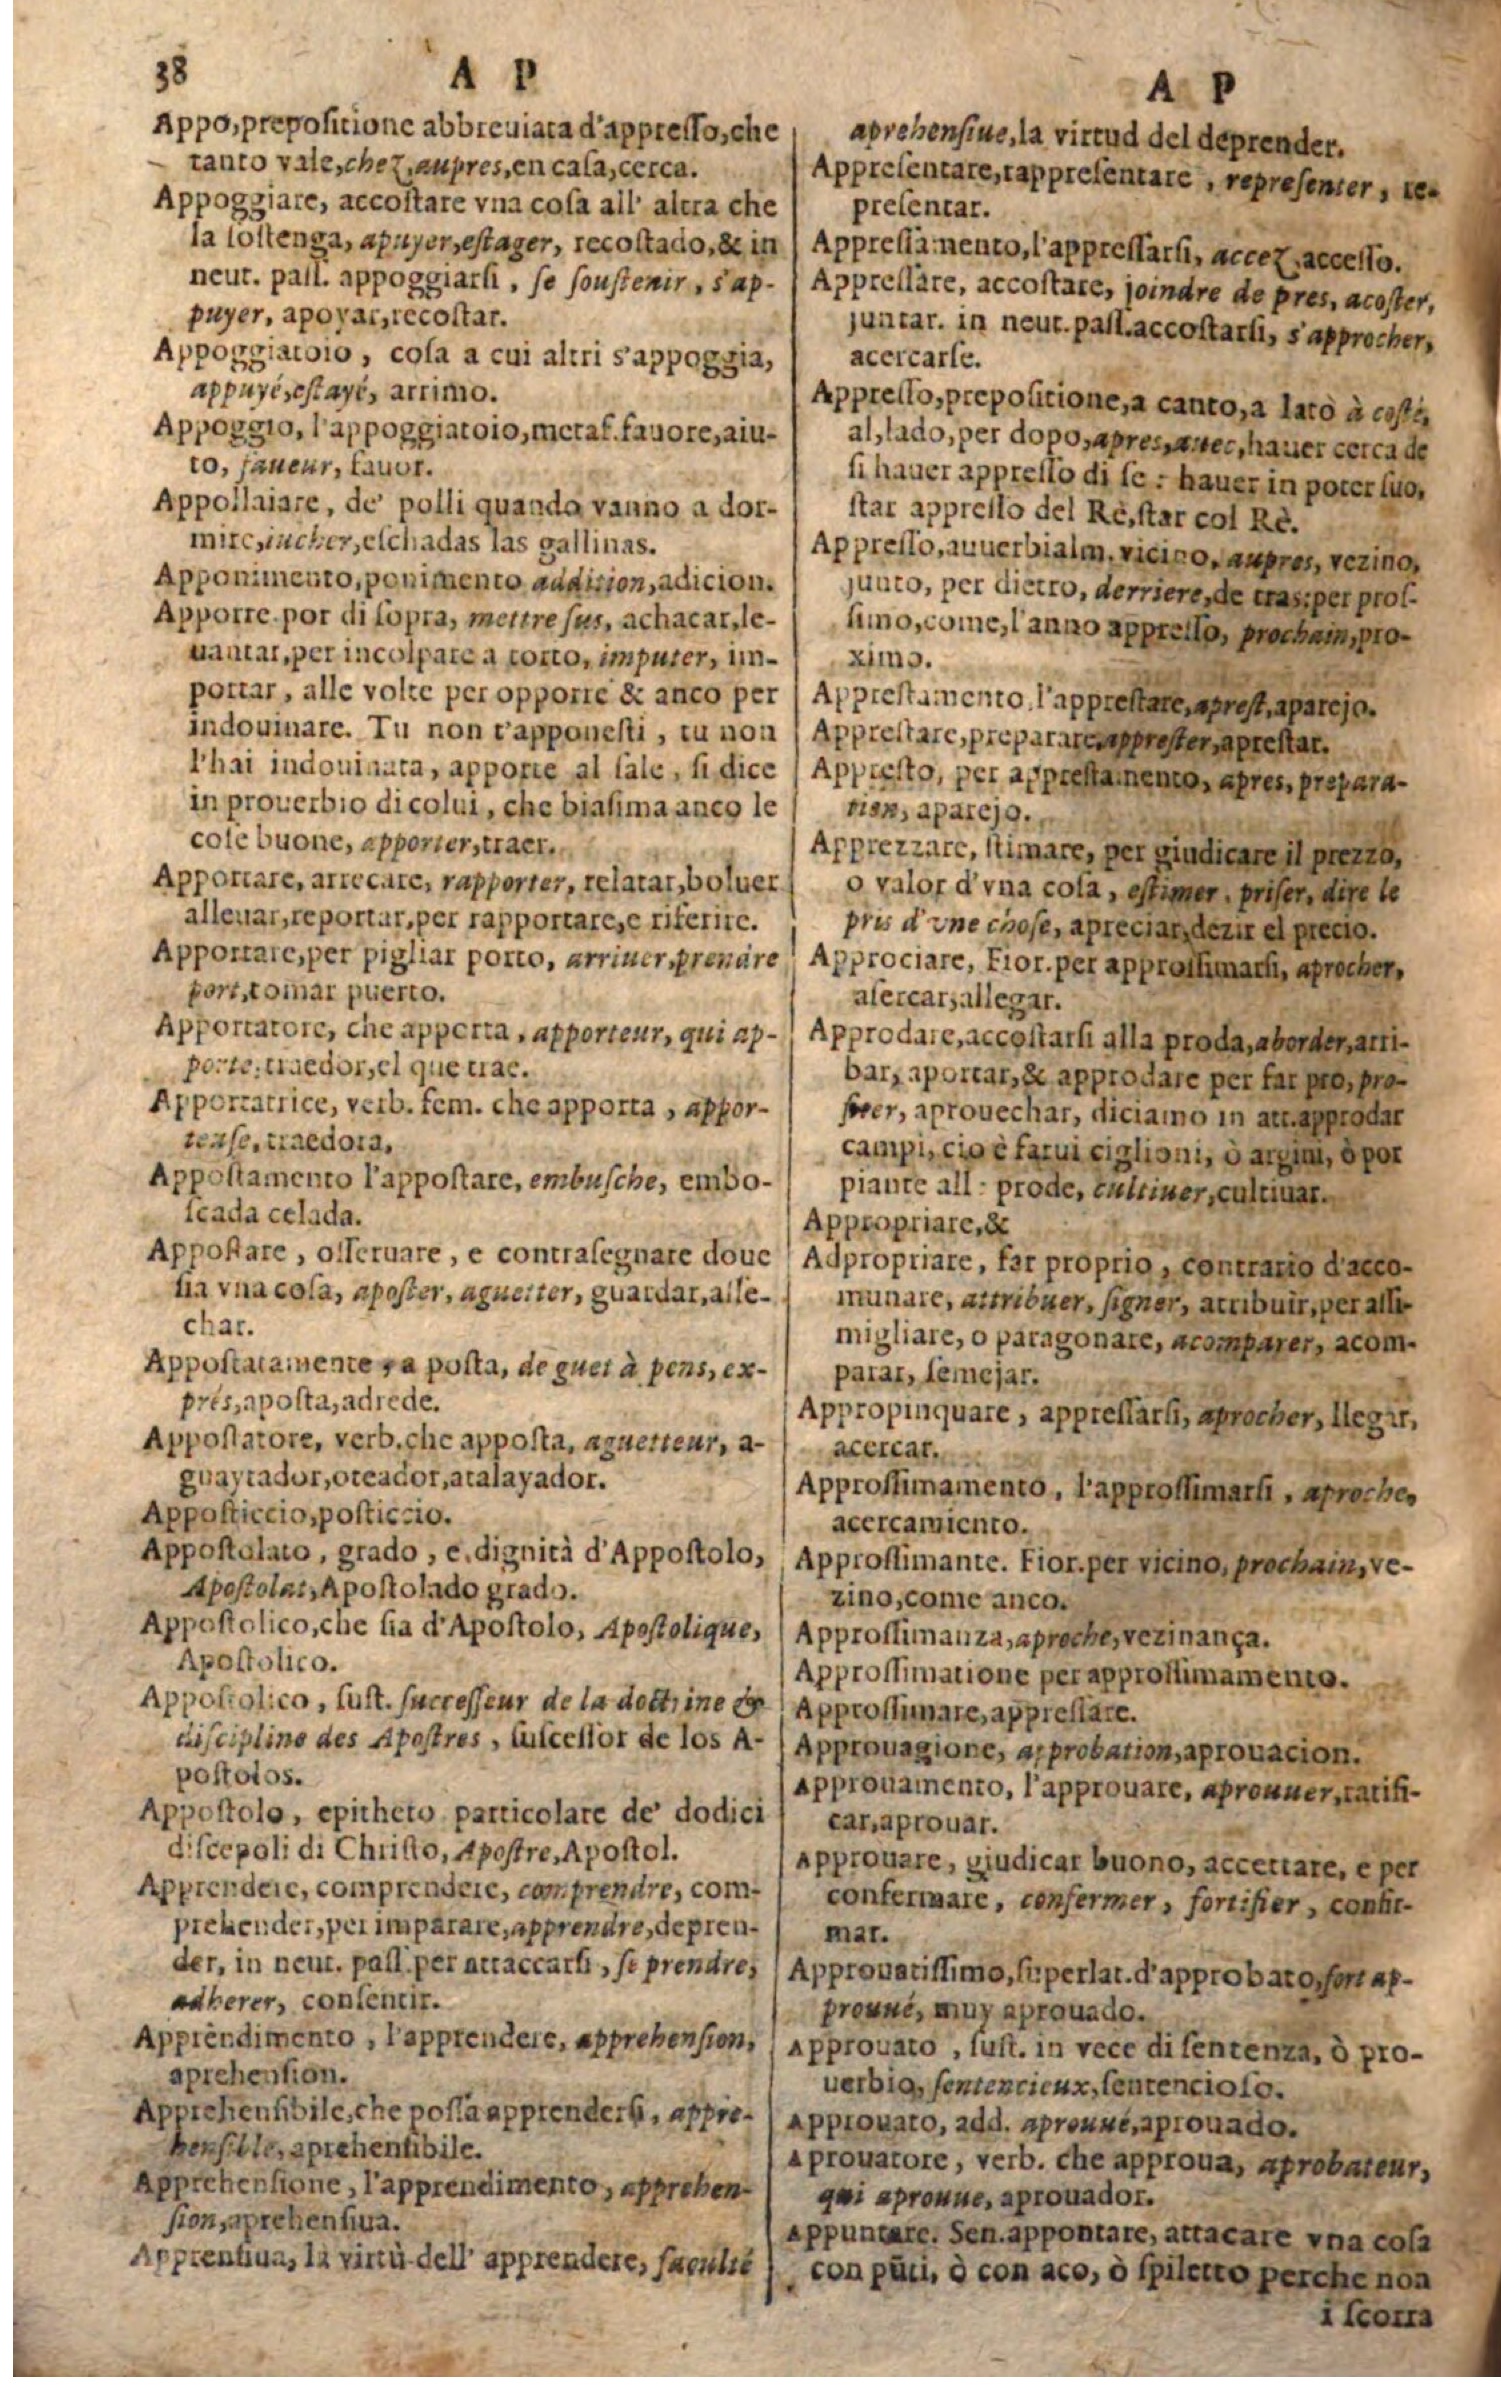 38 A P
Appo,prepoſitione abbreuiata d'appreſſo,che
tanto vale,chez,aupres,en caſa,cerca.
Appoggiare, accoſtare vna coſa all' altra che
la ſoſtenga, apuyer,eſtager, recoſtado,& in
neut. paſſ. appoggiarſi , ſe ſouſtenir , s'ap-
puyer, apoyar,recoſtar.
Appoggiatoio , coſa a cui altri s'appoggia,
appuyé,eſtayé, arrimo.
Appoggio, l'appoggiatoio,metaf.fauore,aiu-
to, faueur, fauor.
Appollaiare , de' polli quando vanno a dor-
mire,iucher,eſchadas las gallinas.
Apponimento,ponimento addition,adicion.
Apporre por di ſopra, mettre ſus, achacar,le-
uantar,per incolpare a torto, imputer, im-
portar , alle volte per opporre & anco per
indouinare. Tu non t'apponeſti , tu non
l'hai indouinata, apporre al ſale , ſi dice
in prouerbio di colui , che biaſima anco le
coſe buone, apporter,traer.
Apportare, arrecare, rapporter, relatar,boluer
alleuar,reportar,per rapportare,e riferire.
Apportare,per pigliar porto, arriuer,prendre
port,tomar puerto.
Apportatore, che apporta , apporteur, qui ap-
porte,traedor,el que trae.
Apportatrice, verb. fem. che apporta , appor-
teuſe,traedora,
Appoſtamento l'appoſtare, embuſche, embo-
ſcada celada.
Appoſtare , oſſeruare , e contraſegnare doue
ſia vna coſa, apoſter, aguetter, guardar,aſſe-
char.
Appoſtatamente , a poſta, de guet à pens, ex-
prés,apoſta,adrede.
Appoſtatore, verb.che appoſta, aguetteur, a-
guaytador,oteador,atalayador.
Appoſticcio,poſticcio.
Appoſtolato , grado , e dignità d'Appoſtolo,
Apoſtolat,Apoſtolado grado.
Appoſtolico,che ſia d'Apoſtolo, Apoſtolique,
Apoſtolico.
Appoſtolico , ſuſt. ſucceſſeur de la doctrine &
diſcipline des Apoſtres , ſuſceſſor de los A-
poſtolos.
Appoſtolo , epitheto particolare de' dodici
diſcepoli di Chriſto, Apoſtre,Apoſtol.
Apprendere, comprendere, comprendre, com-
prehender,per imparare,apprendre,depren-
der, in neut. paſſ.per attaccarſi , ſe prendre,
adherer, conſentir.
Apprèndimento , l'apprendere, apprehenſion,
aprehenſion.
Apprehenſibile,che poſſa apprenderſi, appre-
henſible, aprehenſibile.
Apprehenſione , l'apprendimento , apprehen-
ſion,aprehenſiua.
Apprenſiua, la virtù dell' apprendere, faculté
A P
aprehenſiue,la virtud del deprender.
Appreſentare,rappreſentare , repreſenter , re-
preſentar.
Appreſſamento,l'appreſſarſi, accez,acceſſo.
Appreſſare, accoſtare, joindre de pres, acoſter,
juntar. in neut.paſſ.accoſtarſi, s'approcher,
acercarſe.
Appreſſo,prepoſitione,a canto,a lato à coſté,
al,lado,per dopo,apres,auec,hauer cerca de
ſi hauer appreſſo di ſe : hauer in poter ſuo,
ſtar appreſſo del Rè,ſtar col Rè.
Appreſſo,auuerbialm.vicino, aupres, vezino,
junto, per dietro, derriere,de tras:per proſ-
ſimo,come,l'anno appreſſo, prochain,pro-
ximo.
Appreſtamento,l'appreſtare,apreſt,aparejo.
Appreſtare,preparare,appreſter,apreſtar.
Appreſto, per appreſtamento, apres, prepara-
tion, aparejo.
Apprezzare, ſtimare, per giudicare il prezzo,
o valor d'vna coſa , eſtimer , priſer, dire le
pris d'vne choſe, apreciar,dezir el precio.
Approciare, Fior.per approſſimarſi, aprocher,
aſercar,allegar.
Approdare,accoſtarſi alla proda,aborder,arri-
bar, aportar,& approdare per far pro, pro-
fiter, aprouechar, diciamo in att.approdar
campi, cio è farui ciglioni, ò argini, ò por
piante all: prode, cultiuer,cultiuar.
Appropriare,&
Adpropriare, far proprio , contrario d'acco-
munare, attribuer, ſigner, atribuìr,per aſſi-
migliare, o paragonare, acomparer, acom-
parar, ſemejar.
Appropinquare , appreſſarſi, aprocher, llegar,
acercar.
Approſſimamento , l'approſſimarſi , aproche,
acercamiento.
Approſſimante. Fior.per vicino, prochain,ve-
zino,come anco.
Approſſimanza,aproche,vezinança.
Approſſimatione per approſſimamento.
Approſſimare,appreſſare.
Approuagione, approbation,aprouacion.
Approuamento, l'approuare, aprouuer,ratifi-
car,aprouar.
Approuare , giudicar buono, accettare, e per
confermare , confermer , fortifier , confir-
mar.
Approuatiſſimo,ſuperlat.d'approbato,fort ap-
prouué, muy aprouado.
Approuato , ſuſt. in vece di ſentenza, ò pro-
uerbio, ſentencieux,ſentencioſo.
Approuato, add. aprouué,aprouado.
Aprouatore , verb. che approua, aprobateur,
qui aprouue, aprouador.
Appuntare. Sen.appontare, attacare vna coſa
con pūti, ò con aco, ò ſpiletto perche non
i ſcorra